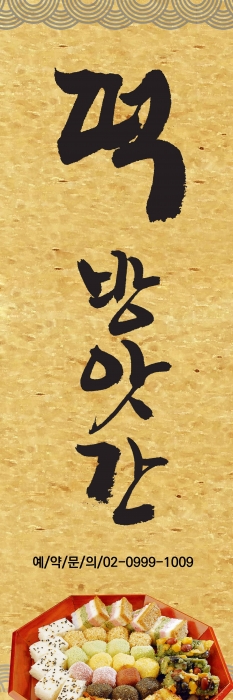 떡
방
앗
간
예/약/문/의/02-0999-1009